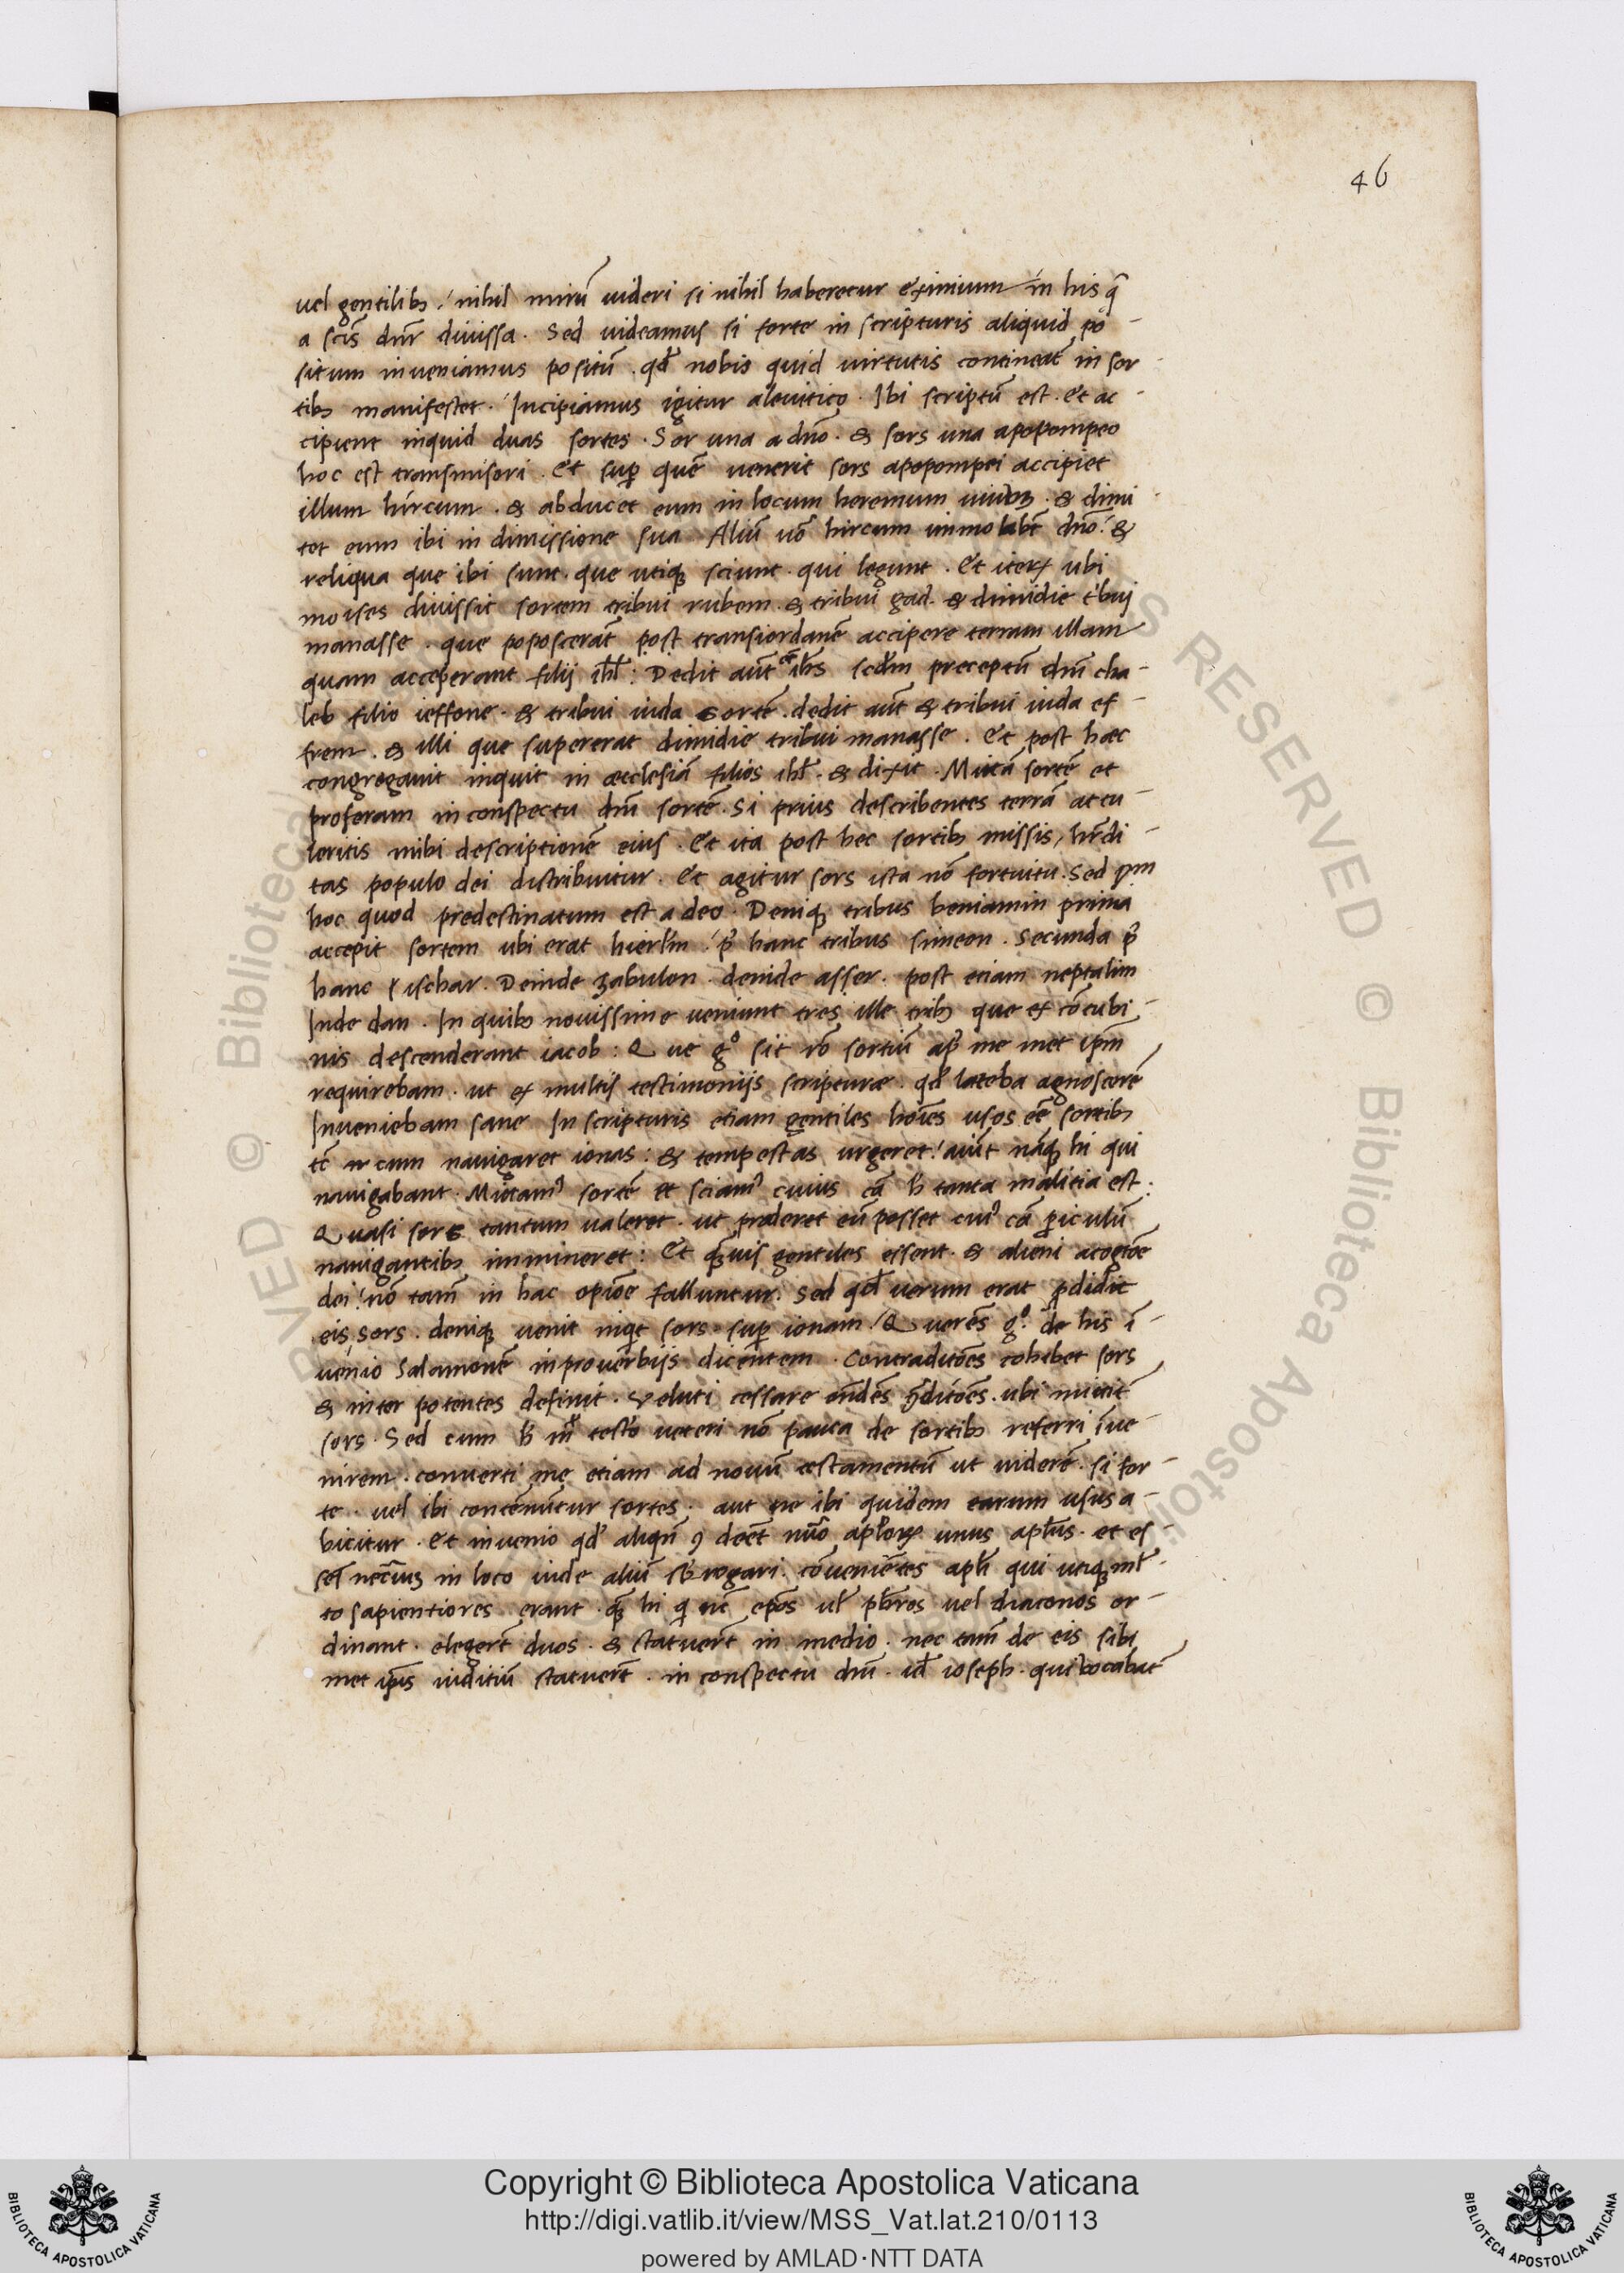 46
vel gentilibꝫ. nihil mirũ uideri si nihil haberetur eximium in his q̃
a scis dnr diuissa. Sed uideamus si forte in scripturis aliquid po-
situm inueniamus positũ. qd nobis quid uirtutis contineat in sor-
tibꝫ manifestet. Incipiamus igitur aleuitico. Ibi scriptũ est. Et ac-
cipient inquid duas sortes. Sor una a dño. & sors una apopompeo
hoc est transmisori. Et sup quẽ uenerit sors apopompei accipiet
illum hircum. & abducet eum in locum heremum & dimi-
tet eum ibi in dimissione sua Aliũ uõ hircum immolabt dño. &
reliqua que ibi sunt. que utiqꝫ sciunt. qui legunt. Et iteꝝ ubi
moises diuissit sortem tribui rubem. & tribui gad. & dimidie tbui
manasse. que poposcerãt post transiordanẽ accipere terram illam
quam acceperant filij ihl: Dedit aũt ihs scdm preceptũ dni cha-
leb filio ieffone. & tribui iuda sortẽ. dedit aũt & tribui iuda ef-
frem. & illi que supererat dimidie tribui manasse. Et post hæc
congregauit inquit in æcclesiã filios ihl. & dixit. Mittã sortẽ et
proferam in conspectu dni sortẽ. Si prius describentes terrã attu-
leritis mihi descriptionẽ eius. Et ita post hec sortibꝫ missis, hrdi-
tas populo dei distribuitur. Et agitur sors ista nõ fortuitu. Sed
hoc quod predestinatum est a deo. Deniqꝫ tribus beniamin prima
accepit sortem ubi erat hierlm. p hanc tribus simeon. Secunda p
hanc ischar. Deinde zabulon. deinde asser. post etiam neptalim
Inde dan. In quibꝫ nouissime ueniunt tres ille tribꝫ que ex cõcubi-
nis descenderant iacob: Que gº sit rõ sortiũ ap me met ipm
requirebam. ut ex multis testimonijs scripturæ. qd lateba agnoscerẽ
Inueniebam sane In scripturis etiam gentiles hoies usos eẽ sortibꝫ
cum nauigaret ionas: & tempestas urgeret. aiũt nãqꝫ hi qui
nauigabant. Mittamꝰ sortẽ et sciamꝰ cuius cã h tanta malitia est.
Quasi sors tantum ualeret. ut prderet eũ posset cuiꝰ cã piculũ
nauigantibꝫ immineret: Et quis gentiles essent. & alieni acogtõe
dei. nõ tam in hac opioe falluntur. Sed qd uerum erat pdidit
eis sors. deniqꝫ uenit inqt sors sup ionam. Querẽs gº. de his ĩ-
uenio Salamonẽ in prouerbijs dicentem. Contraditões cohibet sors
& inter potentes definit. ueluti cessare ditões. ubi mittit
sors. Sed cum h testo ueteri nõ pauca de sortibꝫ referri ĩue-
nirem. conuerti me etiam ad nouũ testamentũ ut uiderẽ. si for-
te. uel ibi contẽnuntur sortes. aut ne ibi quidem earum usus a-
bicitur. Et inuenio qd aliqñ ꝯ deẽt nũo aploꝝ unus aplus. et es-
set in loco iude aliũ sbrogari. cõuenientes apli qui utiqꝫ ml-
to sapientiores erant. hi q epos ul pbros uel diaconos or-
dinant. elegert duos. & statuert in medio. nec tam de eis sibi
met ipis iuditiũ statuert. in conspectu dni. id ioseph. qui uocabat
VED © Biblioteca
S RESERVED © Biblioteca Apostoli
Copyright © Biblioteca Apostolica Vaticana
http://digi.vatlib.it/view/MSS_Vat.lat.210/0113
powered by AMLAD·NTT DATA
BIBLIOTECA APOSTOLICA VATICANA
BIBLIOTECA APOSTOLICA VATICANA